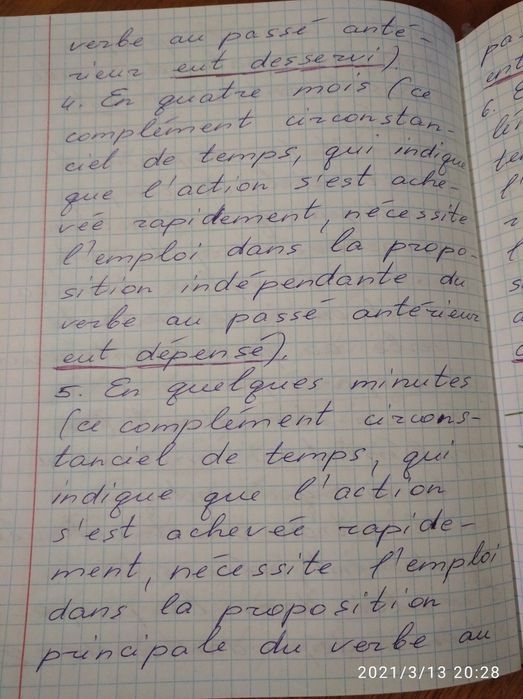 verbe au passé anté-
rieur eut desservi).
4. En quatre mois (ce
complément circonstan-
ciel de temps, qui indique
que l'action s'est ache-
vée rapidement, nécessite
l'emploi dans la propo-
sition indépendante du
verbe au passé antérieur
eut dépensé).
5. En quelques minutes
(ce complément circons-
tanciel de temps, qui
indique que l'action
s'est achevée rapide-
ment, nécessite l'emploi
dans la proposition
principale du verbe au
pa-
ent
6.
2021/3/13 20:28